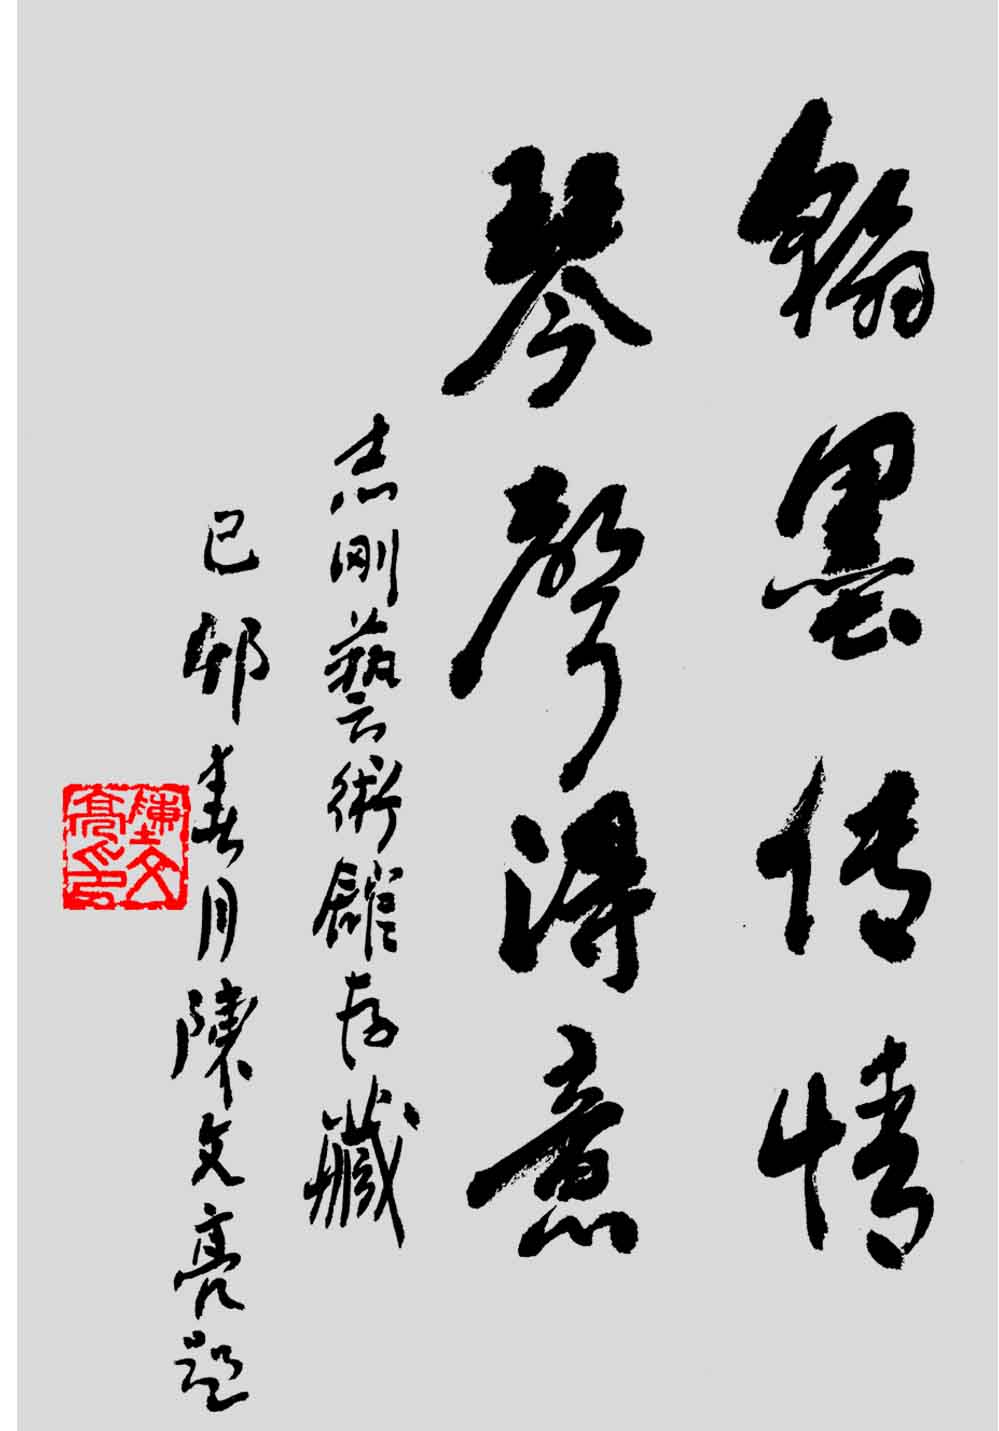 翰墨传情
琴聲得意
志刚藝術館存藏
己卯春月陳文亮题
陳文亮印